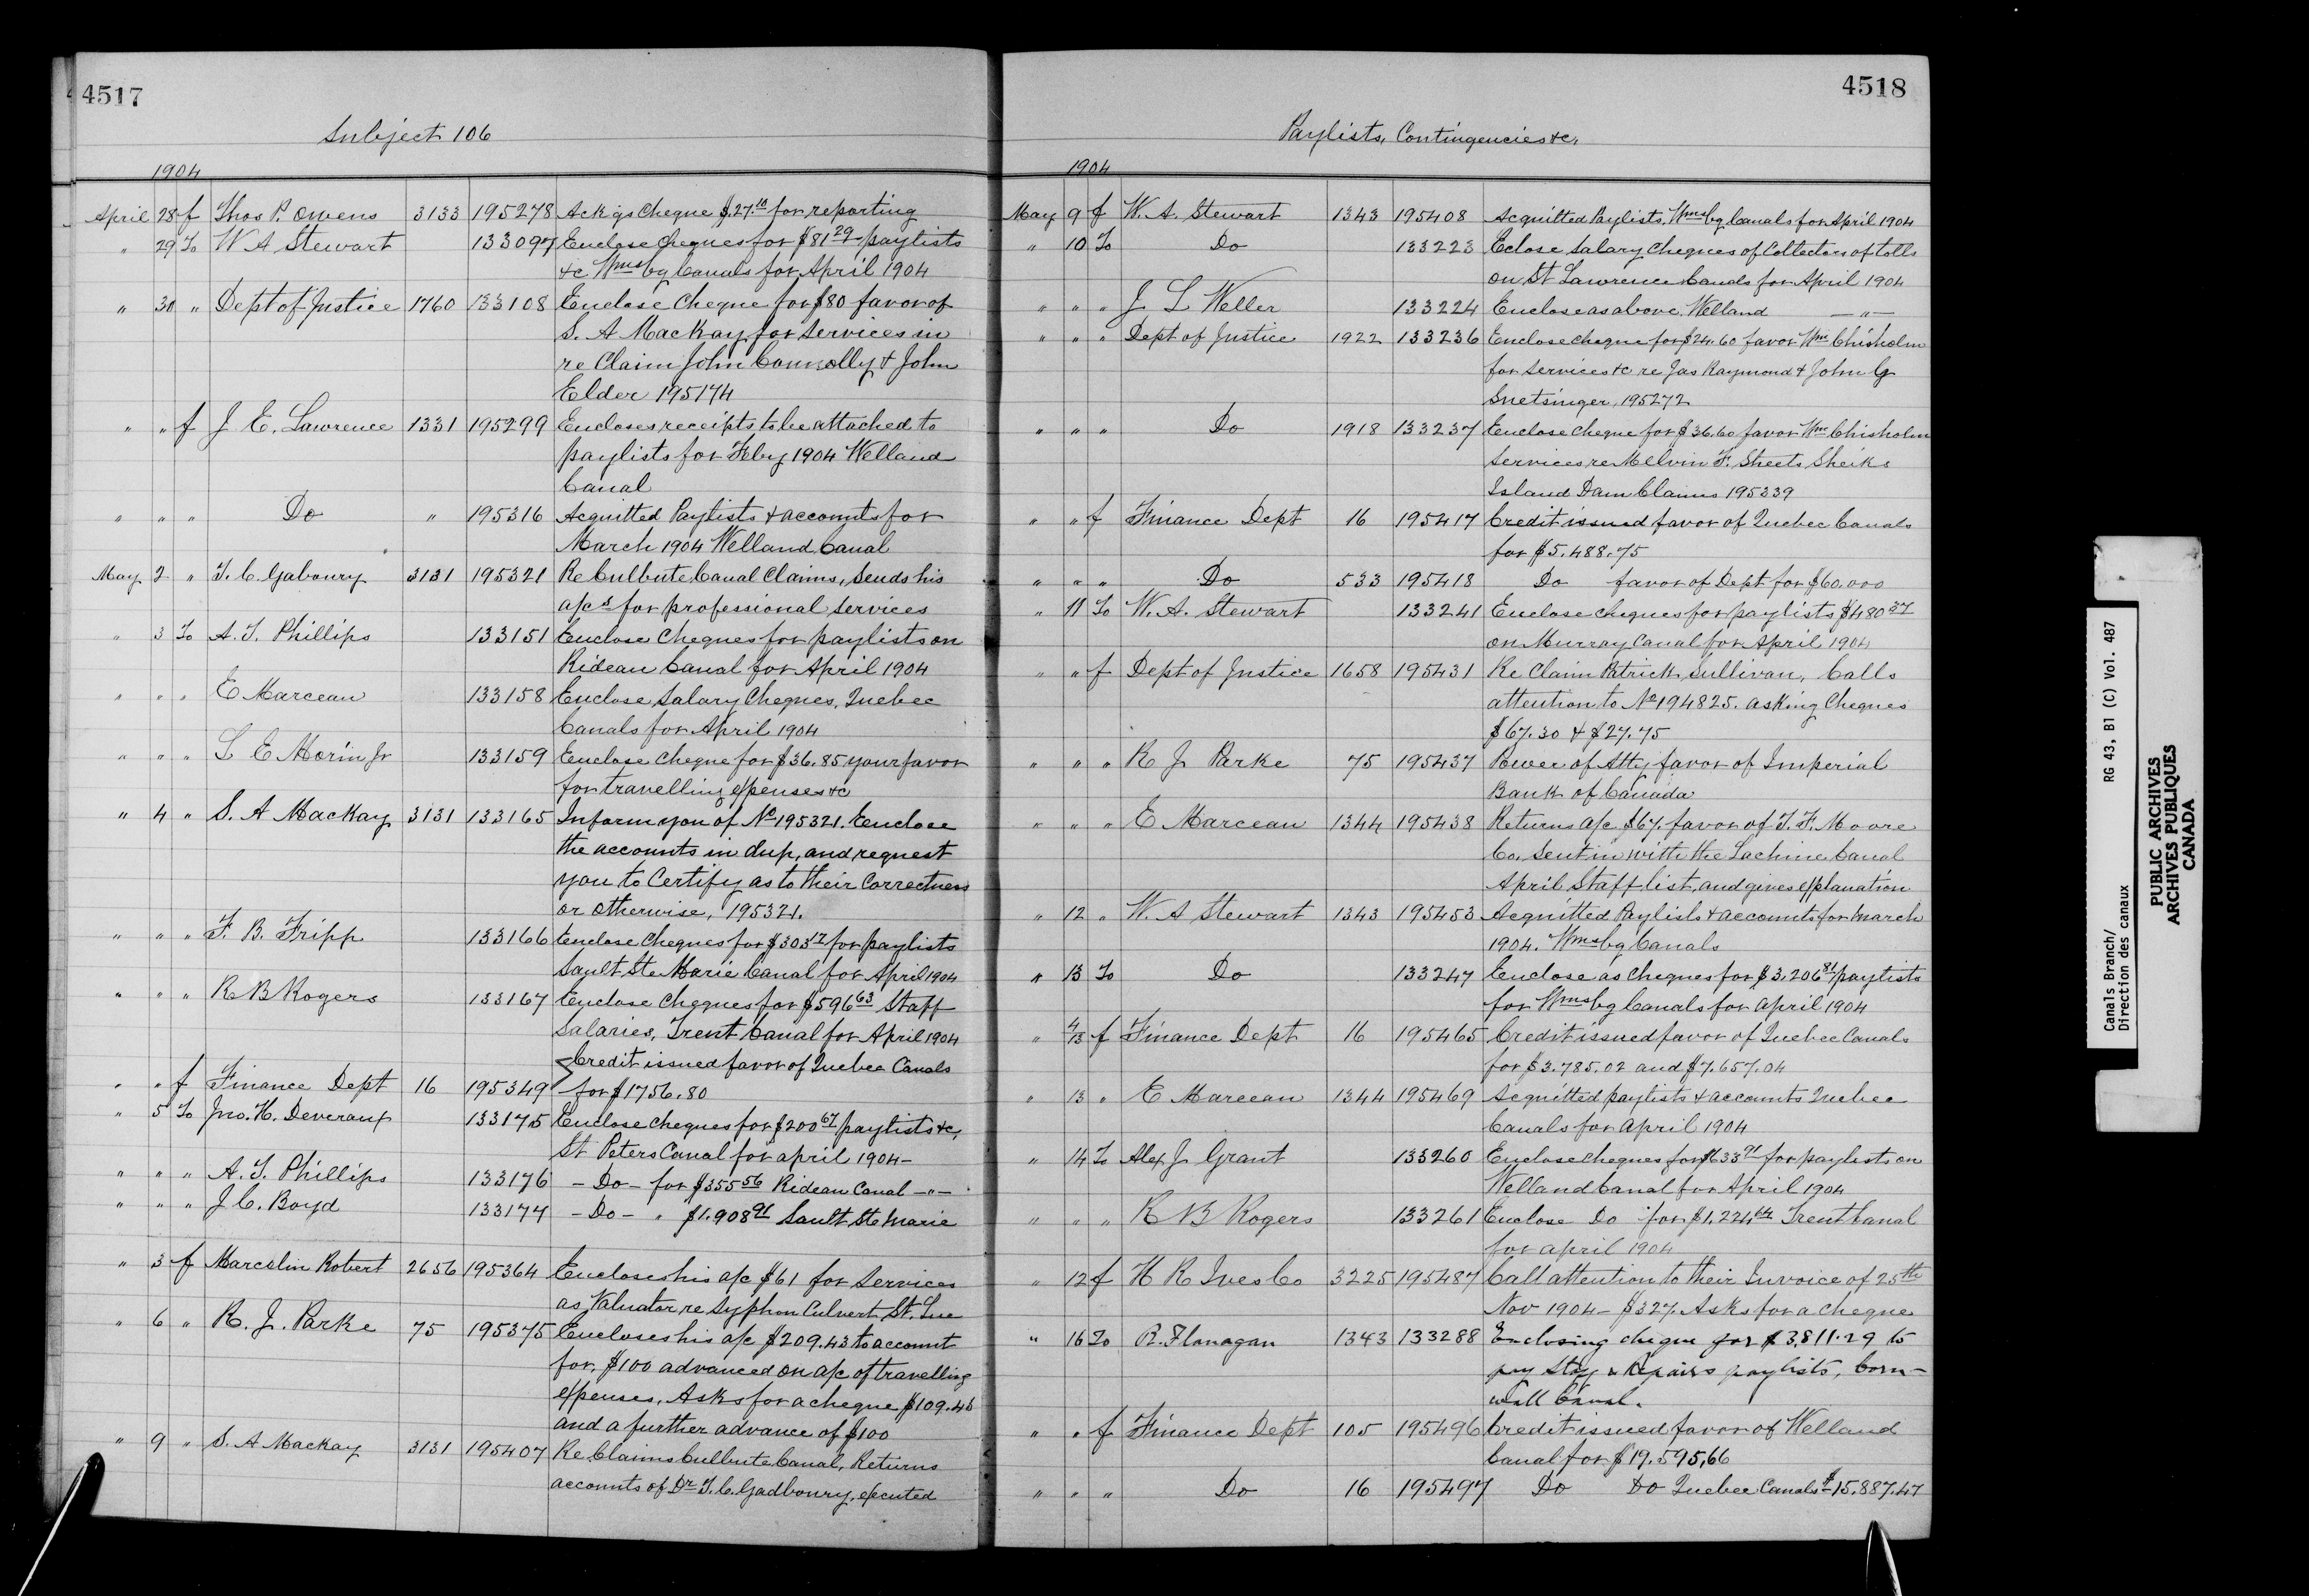 4517
Subject 106
1904
April 28 f Thos P. Owens 3133 195278 Ackgs Cheque $27.10 for reporting
" 29 To W A Stewart 133097 Enclose Cheques for $81 29 paylists
&c Wmsbg Canals for April 1904
" 30 " Dept of Justice 1760 133108 Enclose Cheque for $80 favor of
S. A Mackay for services in
re Claim John Connolly & John
Elder 195174
" " f J. E. Lawrence 1331 195299 Encloses receipts to be attached to
paylists for Feby 1904 Welland
Canal
" " " Do " 195316 Acquitted Paylists & accounts for
March 1904 Welland Canal
May 2 " T. C. Gaboury 3131 195321 Re Culbute Canal Claims, Sends his
a/cs for professional services
" 3 To A. T. Phillips 133151 Enclose Cheques for paylists on
Rideau Canal for April 1904
" " " E Marceau 133158 Enclose Salary Cheques, Quebec
Canals for April 1904
" " " L E Morin Jr 133159 Enclose Cheque for $36.85 your favor
for travelling expenses &c
" 4 " S. A Mackay 3131 133165 Inform you of No 195321. Enclose
the accounts in dup, and request
you to Certify as to their Correctness
or otherwise, 195321.
" " " F. B. Fripp 133166 Enclose Cheques for $303 17 for paylists
Sault Ste Marie Canal for April 1904
" " " R B Rogers 133167 Enclose Cheques for $596 63 Staff
Salaries, Trent Canal for April 1904
Credit issued favor of Quebec Canals
" " f Finance Dept 16 195349 for $1756.80
" 5 To Jno. H. Deveraux 133175 Enclose Cheques for $200 67 paylists &c,
St Peters Canal for april 1904-
" " " A. T. Phillips 133176 - Do - for $355 56 Rideau Canal -"-
" " " J C. Boyd 133177 - Do - " $1.908 91 Sault Ste Marie
" 3 f Marcelin Robert 2656 195364 Encloses his a/c $61 for services
as Valuator re Syphon Culvert, St. Luc
" 6 " R. J. Parke 75 195375 Encloses his a/c $209.43 to account
for, $100 advanced on a/c of travelling
expenses, Asks for a cheque $109.43
and a further advance of $100
" 9 " S. A Mackay 3131 195407 Re Claims Culbute Canal, Returns
accounts of Dr T. C. Gadboury, executed
4518
Paylists, Contingencies &c.
1904
May 9 f W. A. Stewart 1343 195408 Acquitted Paylists, Wmsbg Canals for April 1904
" 10 To Do 133223 Eclose Salary Cheques of Collectors of tolls
on St Lawrence Canals for April 1904
" " " J L Weller 133224 Enclose as above, Welland -"-
" " " Dept of Justice 1922 133236 Enclose cheque for $24.60 favor Wm Chisholm
for services &c re Jas Raymond & John G
Snetsinger, 195272
" " " Do 1918 133237 Enclose Cheque for $36.60 favor Wm Chisholm
Services re Melvin F. Sheets Sheiks
Island Dam Claims 195339
" " f Finance Dept 16 195417 Credit issued favor of Quebec Canals
for $5.488.75
" " " Do 533 195418 Do favor of Dept for $60.000
" 11 To W. A. Stewart 133241 Enclose Cheques for paylists $480 37
on Murray Canal for April 1904
" " f Dept of Justice 1658 195431 Re Claim Patrick Sullivan, Calls
attention to No 194825. asking Cheques
$67.30 & $27.75
" " " R J Parke 75 195437 Power of Atty, favor of Imperial
Bank of Canada
" " " E Marceau 1344 195438 Returns a/c $67. favor of T. F. Moore
Co. sent in with the Lachine Canal
April Staff list, and gives explanation
" 12 " W. A Stewart 1343 195453 Acquitted Paylists & accounts for March
1904. Wmsbg Canals
" 13 To Do 133247 Enclose as Cheques for $3.206 81 paylists
for Wmsbg Canals for april 1904
" 4/13 f Finance Dept 16 195465 Credit issued favor of Quebec Canals
for $3.785.02 and $7.657.04
" 13 " E Marceau 1344 195469 Acquitted paylists & accounts Quebec
Canals for april 1904
" 14 To Alex J Grant 133260 Enclose cheques for $633 91 for paylists on
Welland Canal for April 1904
" " " R B Rogers 133261 Enclose Do for $1.224 Trent Canal
for april 1904
" 12 f H R Ives Co 3225 195487 Call attention to their Invoice of 25th
Nov 1904 - $327. Asks for a cheque
" 16 To R. Flanagan 1343 133288 Enclosing cheque for $3,811.29 to
pay Staff & Repairs paylists, Corn-
wall Canal.
" " f Finance Dept 105 195496 Credit issued favor of Welland
Canal for $19.595,66
" " " Do 16 195497 Do Do Quebec Canals $15.887.47
Canals Branch/ RG 43, B1 (C) Vol. 487
Direction des canaux
PUBLIC ARCHIVES
ARCHIVES PUBLIQUES
CANADA